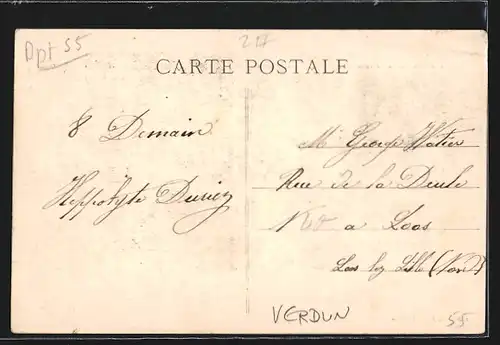 Dpt 55
217
CARTE POSTALE
à Demain
Hippolyte Duriez
Mr George Watier
Rue de la Deule
No a Loos
Loos lez Lille (Nord)
VERDUN
55